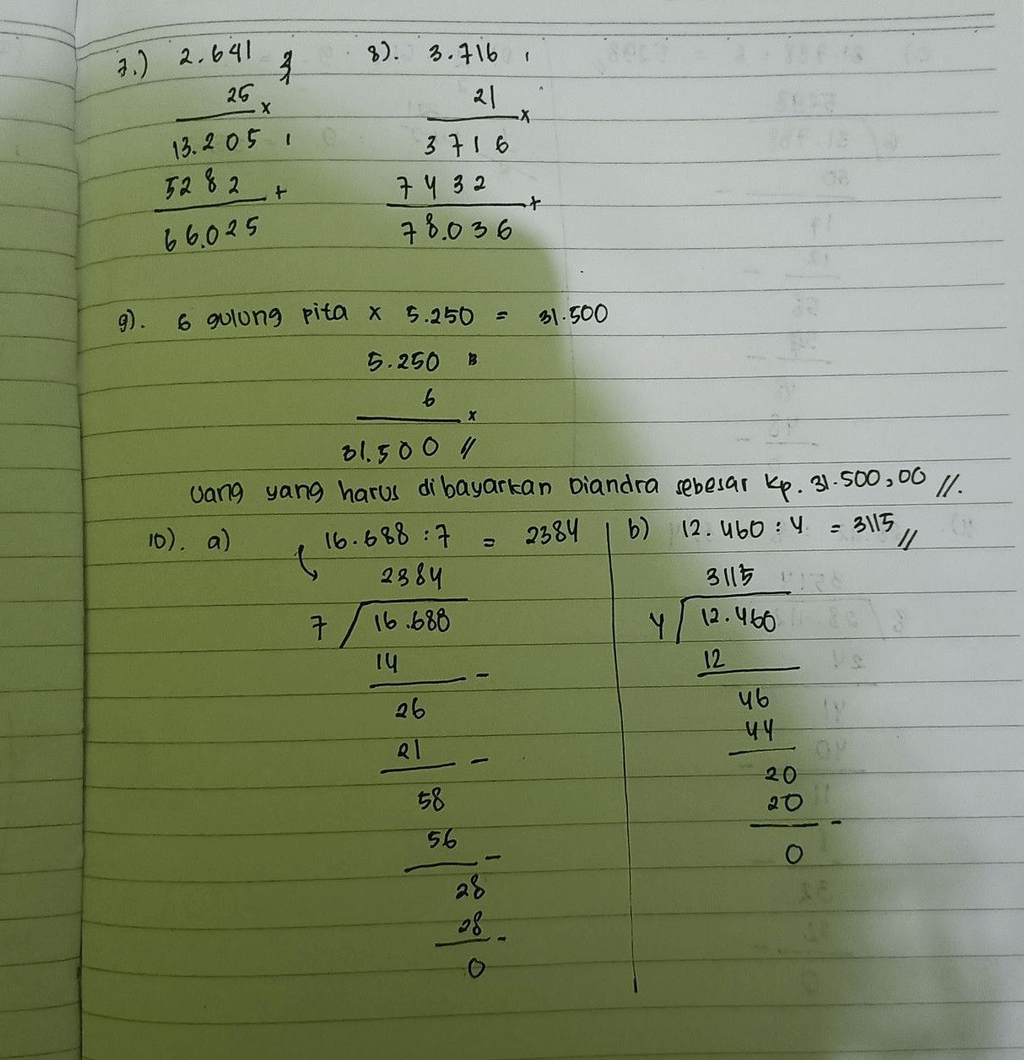 7.) 2.641    8). 3.716
25 x    21 x
13.205    3716
5282 +    7432 +
66.025    78.036
9). 6 gulung pita x 5.250 = 31.500
5.250
6 x
31.500 //
Uang yang harus dibayarkan Diandra sebesar Rp. 31.500,00 //.
10). a) 16.688 : 7 = 2384
2384
7 / 16.688
14 -
26
21 -
58
56 -
28
28 -
0
b) 12.460 : 4 = 3115 //
3115
4 / 12.460
12
46
44
20
20 -
0